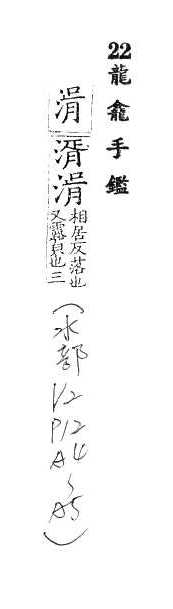 22龍龕手鑑
涓
湑涓相居反落也
又露皃也三
(水部
V2
P12
A4
~
A5)